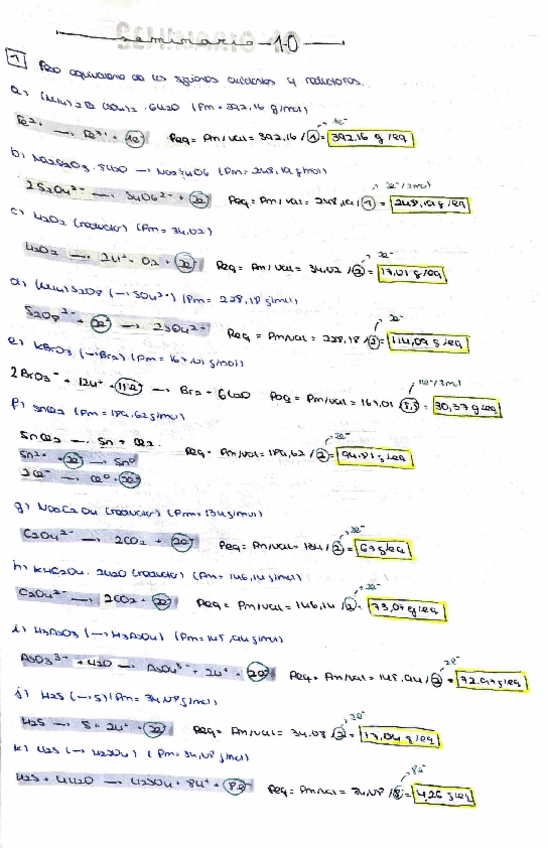 Seminario - 10
1 Peso equivalente de los siguientes oxidantes y reductores.
a) (NH4)2Fe(SO4)2 · 6H2O (Pm = 392,16 g/mol)
1e-
Fe2+ → Fe3+ + 1e- Peq = Pm/val = 392,16 / 1 = 392,16 g/eq
b) Na2S2O3 · 5H2O → Na2S4O6 (Pm = 248,19 g/mol)
2e-/2mol
Peq = Pm/val = 248,19 / 1 = 248,19 g/eq
c) H2O2 (reductor) (Pm = 34,02)
2e-
H2O2 → 2H+ + O2 + 2e- Peq = Pm/val = 34,02 / 2 = 17,01 g/eq
d) (NH4)2S2O8 (→ SO4 2-) (Pm = 228,18 g/mol)
2e-
S2O8 2- + 2e- → 2SO4 2- Peq = Pm/val = 228,18 / 2 = 114,09 g/eq
e) KBrO3 (→ Br2) (Pm = 167,01 g/mol)
2BrO3- + 12H+ + → Br2 + 6H2O Peq = Pm/val = 167,01 = 30,37 g/eq
f) SnCl2 (Pm = 189,62 g/mol)
SnCl2 → Sn + Cl2.
2e-
Sn2+ + 2e- → Sn0 Peq = Pm/val = 189,62 / 2 = 94,81 g/eq
2Cl- → Cl0 + 2e-
g) Na2C2O4 (reductor) (Pm = 134 g/mol)
2e-
C2O4 2- → 2CO2 + 2e- Peq = Pm/val = 134 / 2 = 67 g/eq
h) KHC2O4 · 2H2O (reductor) (Pm = 146,14 g/mol)
2e-
C2O4 2- → 2CO2 + 2e- Peq = Pm/val = 146,14 / 2 = 73,07 g/eq
i) H3AsO3 (→ H3AsO4) (Pm = 145,94 g/mol)
2e-
AsO3 3- + H2O → AsO4 3- + 2H+ + 2e- Peq = Pm/val = 145,94 / 2 = 72,97 g/eq
j) H2S (→ S) (Pm = 34,08 g/mol)
2e-
H2S → S + 2H+ + 2e- Peq = Pm/val = 34,08 / 2 = 17,04 g/eq
k) H2S (→ H2SO4) (Pm = 34,08 g/mol)
H2S + 4H2O → H2SO4 + 8H+ + 8e- Peq = Pm/val = 34,08 / 8 = 4,26 g/eq